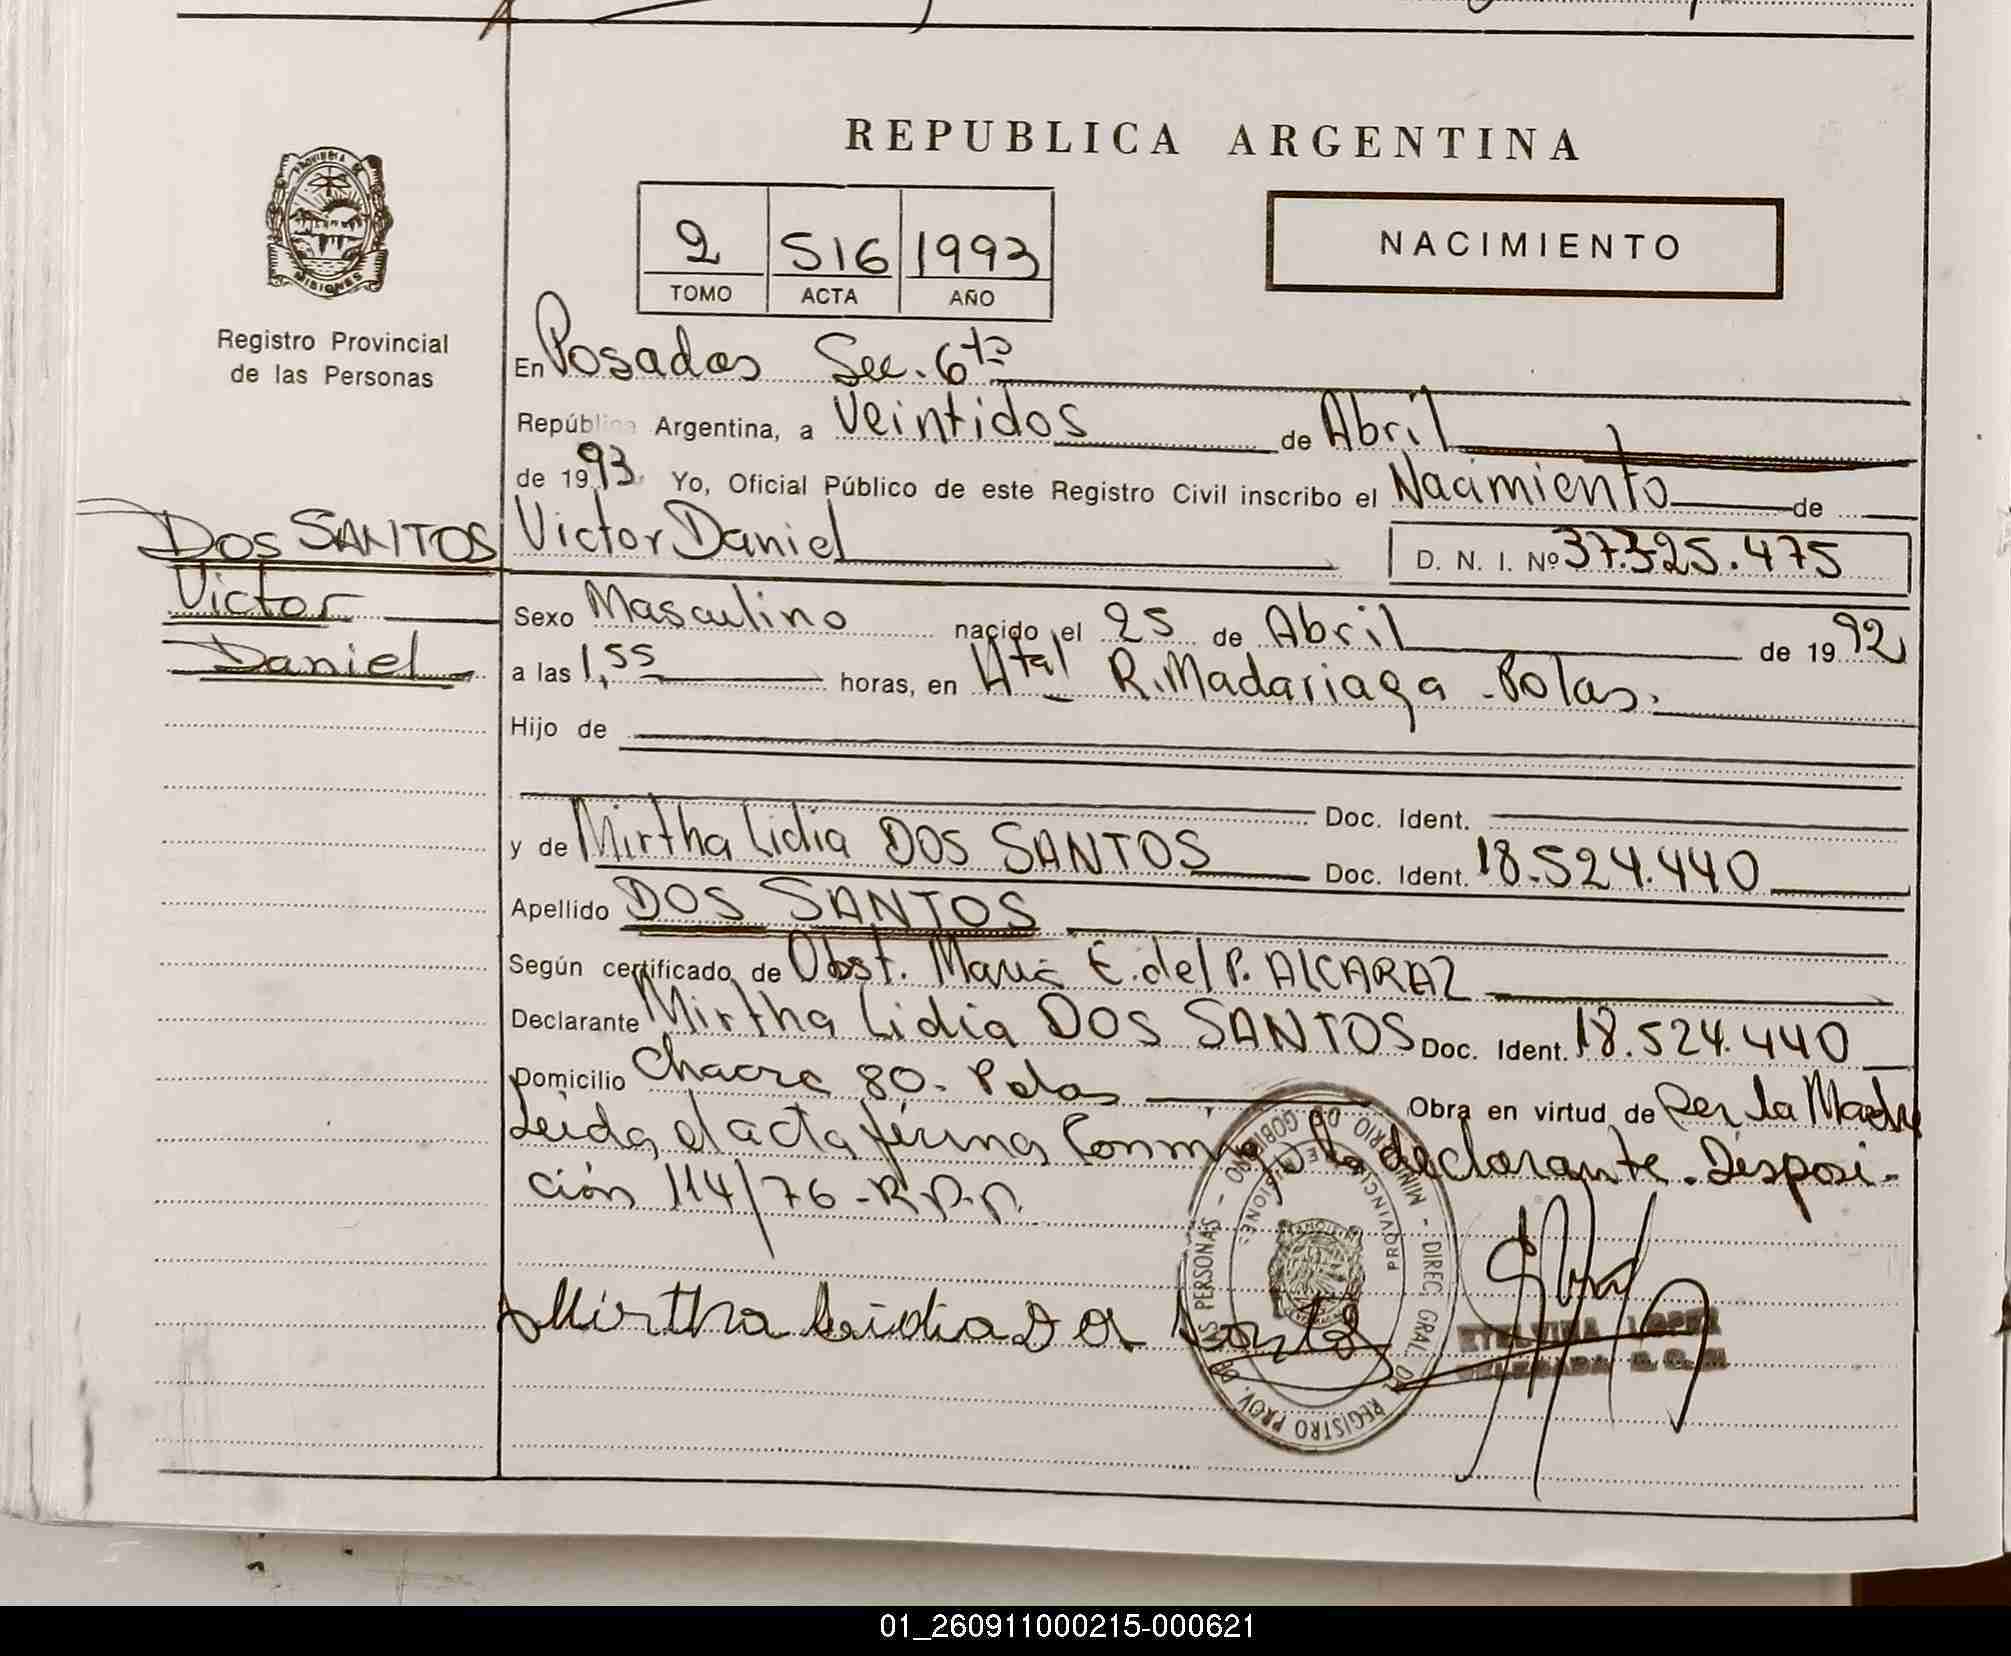 REPUBLICA ARGENTINA
PROVINCIA DE
MISIONES
2 516 1993
TOMO ACTA AÑO
NACIMIENTO
Registro Provincial
de las Personas
En Posadas Sec. 6ta
República Argentina, a Veintidos de Abril
de 1993. Yo, Oficial Público de este Registro Civil inscribo el Nacimiento de
DOS SANTOS Victor Daniel D. N. I. Nº 37.325.475
Victor
Sexo Masculino nacido el 25 de Abril de 1992
Daniel
a las 1,55 horas, en Htal R. Madariaga - Pdas.
Hijo de
Doc. Ident.
y de Mirtha Lidia DOS SANTOS Doc. Ident. 18.524.440
Apellido DOS SANTOS
Según certificado de Obst. Maria E. del P. ALCARAZ
Declarante Mirtha Lidia DOS SANTOS Doc. Ident. 18.524.440
Domicilio Chacra 80 - Pdas Obra en virtud de Ser la Madre
Leida el acta firma Conmigo la declarante. Disposi-
ción 114/76 - R.P.P.
MINISTERIO DE GOBIERNO - DIREC. GRAL. DEL REGISTRO PROV. DE LAS PERSONAS -
PROVINCIA DE MISIONES
Mirtha Lidia Dos Santos
ETELVINA LOPEZ
DELEGADA
01_260911000215-000621